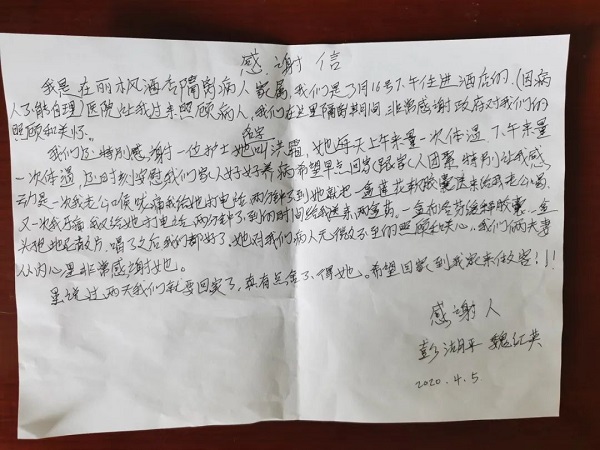 感谢信
我是在丽枫酒店隔离病人家属,我们是3月16号下午住进酒店的.(因病
人不能自理)医院让我过来照顾病人,我们在这里隔离其间非常感谢政府对我们的
照顾和关怀。
我们还特别感谢一位护士她叫洪霜,她每天上午来量一次体温,下午来量
一次体温,还时刻安慰我们家人好好养病希望早点回家跟家人团聚,特别让我感
动是一次我老公喉咙痛我给她打电话,两分钟不到她就把一盒莲花 胶囊送来给我老公喝.
又一次我牙痛我又给她打电话两分钟不到的时间给我送来两盒药。一盒布洛芬缓释胶囊,一盒
头孢地尼 片,喝了之后我们都好了,她对我们病人无微不至的照顾和关心,我们俩夫妻
从内心里非常感谢她。
虽说过两天我们就要回家了,真有点舍不得她。希望回家到我家来做客!!!
感谢人
彭 平 魏红英
2020.4.5